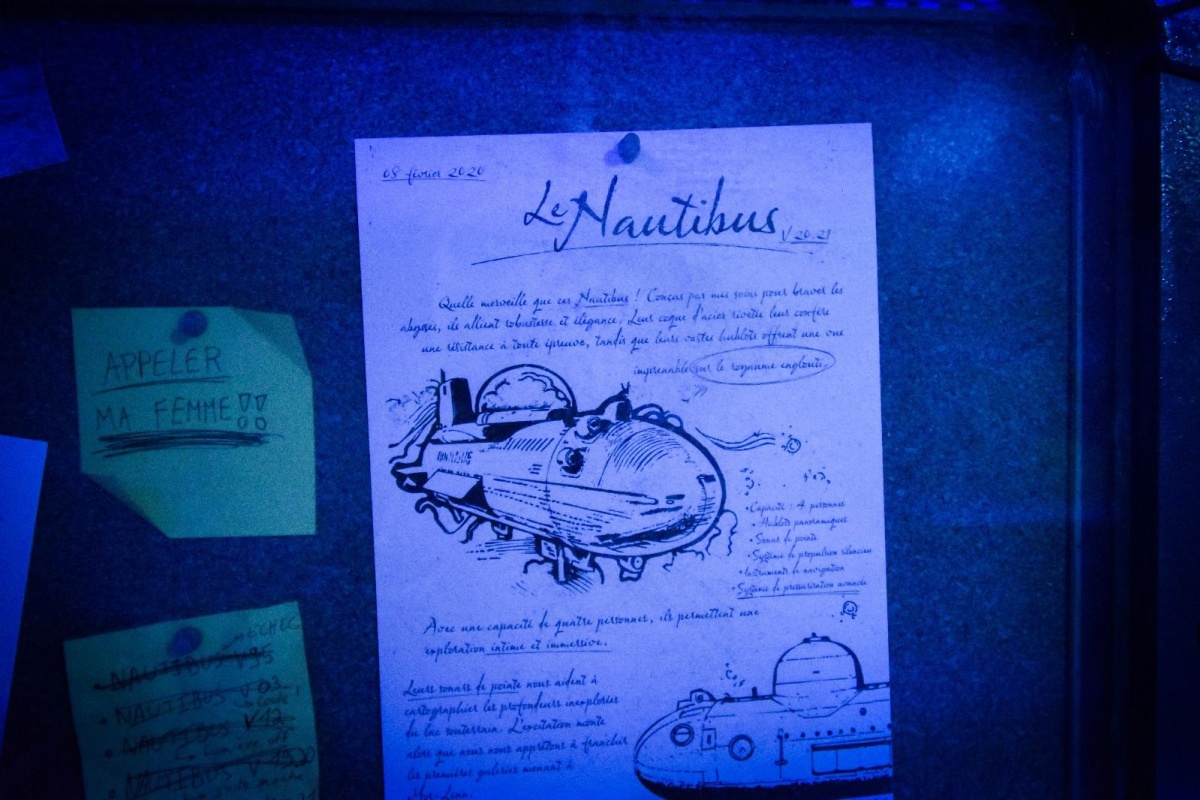 08 février 2020
Le Nautibus
V 20.21
Quelle merveille que ces Nautibus ! Conçus par mes soins pour braver les
abysses, ils allient robustesse et élégance. Leur coque d'acier rivetée leur confère
une résistance à toute épreuve, tandis que leurs vastes hublots offrent une vue
imprenable sur le royaume englouti.
NAUTIBUS
• Capacité : 4 personnes
• Hublots panoramiques
• Sonar de pointe
• Système de propulsion silencieux
• Instruments de navigation
• Système de pressurisation avancée
Avec une capacité de quatre personnes, ils permettent une
exploration intime et immersive.
Leurs sonars de pointe nous aident à
cartographier les profondeurs inexplorées
du lac souterrain. L'excitation monte
alors que nous nous apprêtons à franchir
les premières galeries menant à
APPELER
MA FEMME!!
ÉCHEC
• NAUTIBUS V95
• NAUTIBUS V 03
• NAUTIBUS V12
• NAUTIBUS V